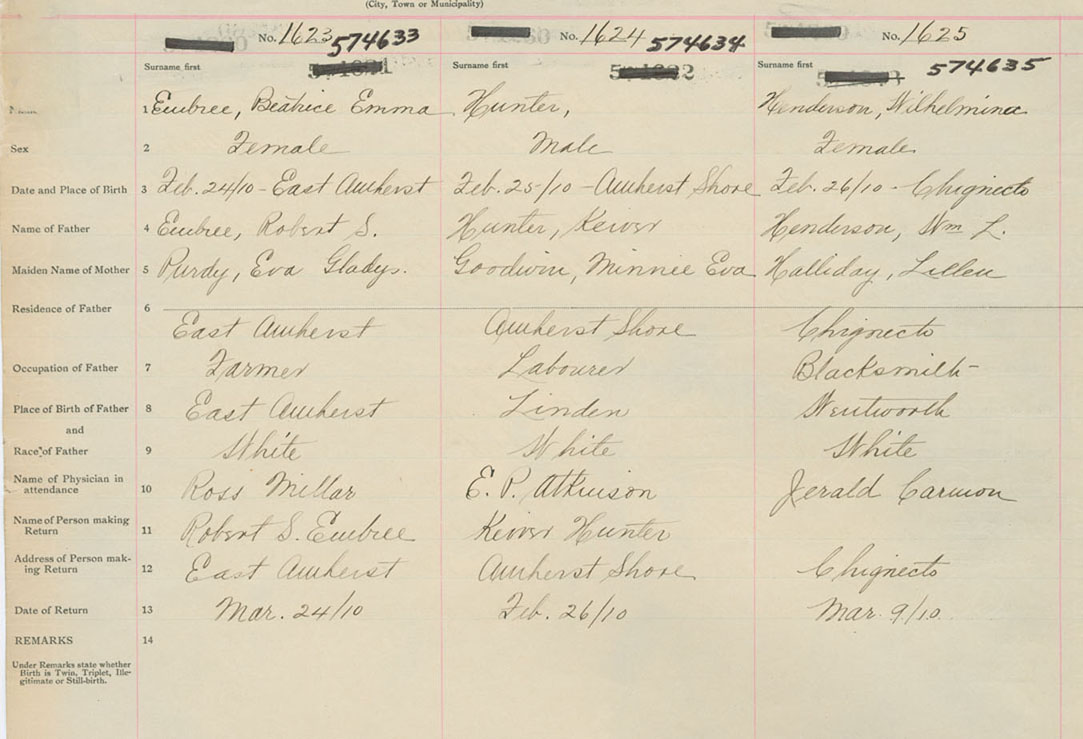 (City, Town or Municipality)
No. 1623 574633 No. 1624 574634 No. 1625
574635
Surname first Surname first Surname first
1 Embree, Beatrice Emma Hunter, Henderson, Wilhelmina
Sex 2 Female Male Female
Date and Place of Birth 3 Feb. 24/10 - East Amherst Feb. 25/10 - Amherst Shore Feb. 26/10 - Chignecto
Name of Father 4 Embree, Robert S. Hunter, Keiver Henderson, Wm L.
Maiden Name of Mother 5 Purdy, Eva Gladys. Goodwin, Minnie Eva Halliday, Lillen
Residence of Father 6
East Amherst Amherst Shore Chignecto
Occupation of Father 7 Farmer Labourer Blacksmith
Place of Birth of Father 8 East Amherst Linden Wentworth
and
Race of Father 9 White White White
Name of Physician in
attendance 10 Ross Millar E. P. Atkinson Jerald Carmon
Name of Person making
Return 11 Robert S. Embree Keiver Hunter
Address of Person mak-
ing Return 12 East Amherst Amherst Shore Chignecto
Date of Return 13 Mar. 24/10 Feb. 26/10 Mar. 9/10.
REMARKS 14
Under Remarks state whether
Birth is Twin, Triplet, Ille-
gitimate or Still-birth.